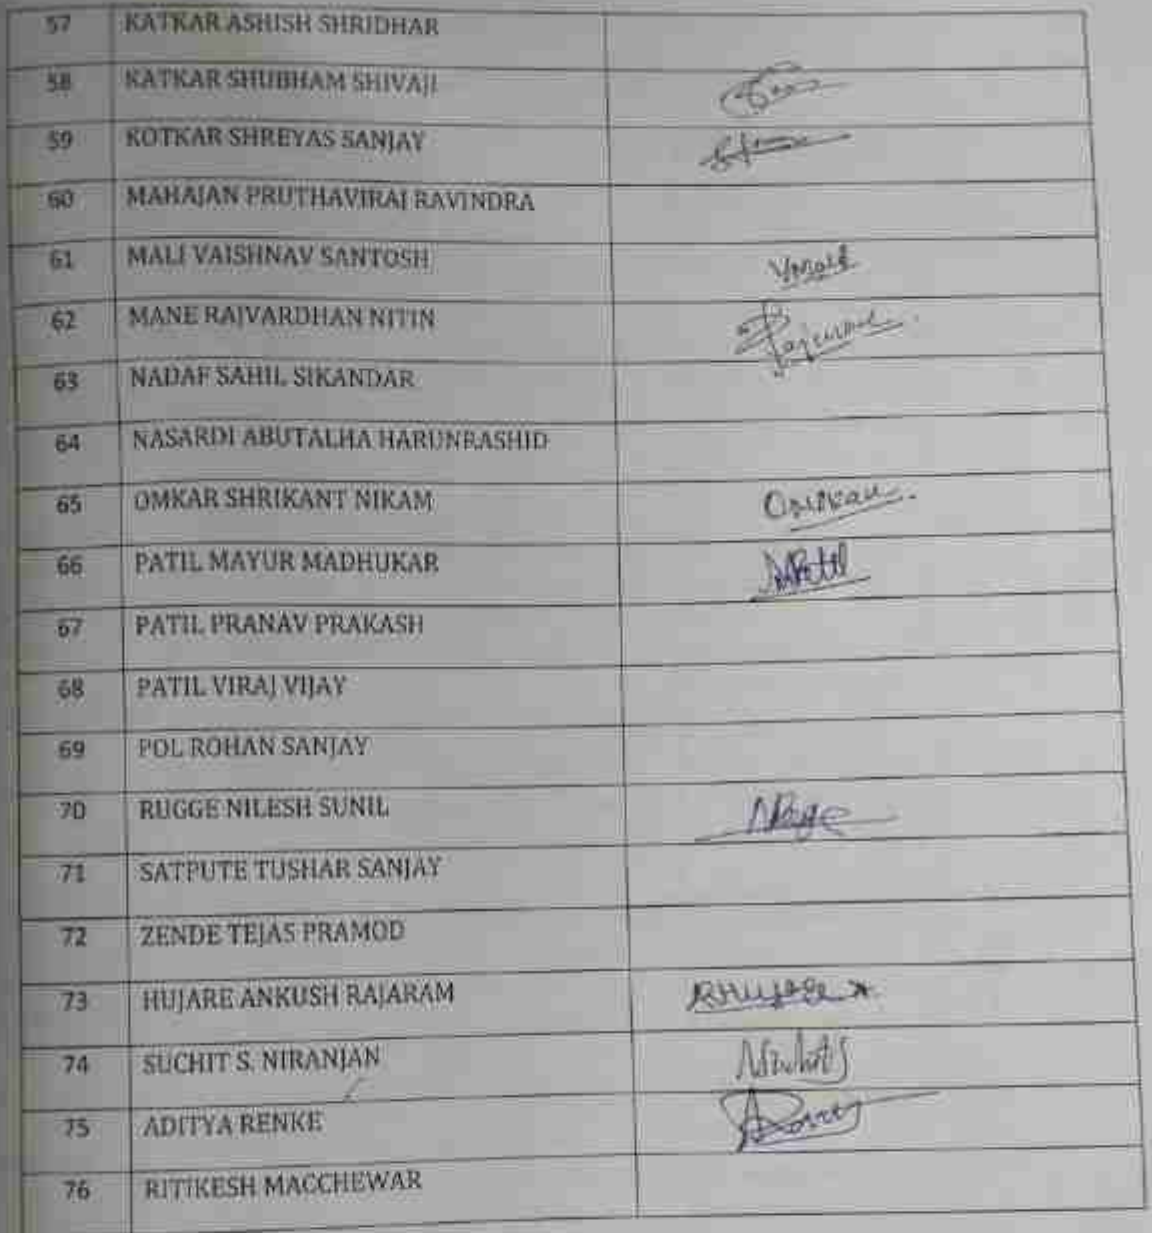 57 KATKAR ASHISH SHRIDHAR
58 KATKAR SHUBHAM SHIVAJI
59 KOTKAR SHREYAS SANJAY
60 MAHAJAN PRUTHAVIRAJ RAVINDRA
61 MALI VAISHNAV SANTOSH
62 MANE RAJVARDHAN NITIN
63 NADAF SAHIL SIKANDAR
64 NASARDI ABUTALHA HARUNRASHID
65 OMKAR SHRIKANT NIKAM Omkar
66 PATIL MAYUR MADHUKAR MPatil
67 PATIL PRANAV PRAKASH
68 PATIL VIRAJ VIJAY
69 POL ROHAN SANJAY
70 RUGGE NILESH SUNIL
71 SATPUTE TUSHAR SANJAY
72 ZENDE TEJAS PRAMOD
73 HUJARE ANKUSH RAJARAM
74 SUCHIT S. NIRANJAN
75 ADITYA RENKE
76 RITIKESH MACCHEWAR